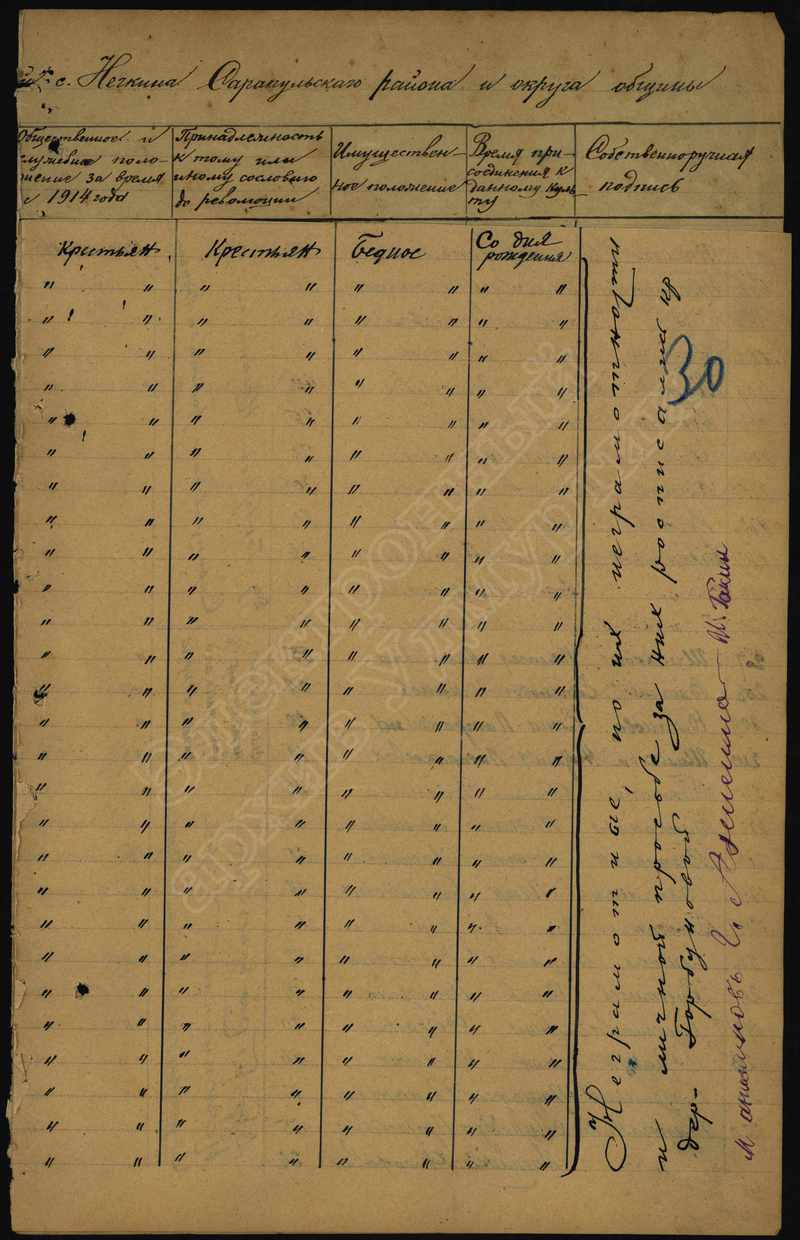 с. Нечкина Сарапульскаго района и округа общины
Общественное и служебное поло-
жение за время
с 1914 года
Принадлежность
к тому или
иному сословию
до революции
Имуществен-
ное положение
Время при-
соединения к
данному куль-
ту
Собственноручная
подпись
Крестьян Крестьян Бедное Со дня
рождения
" " " " " " " "
" " " " " " " "
" " " " " " " "
" " " " " " " "
" " " " " " " "
" " " " " " " "
" " " " " " " "
" " " " " " " "
" " " " " " " "
" " " " " " " "
" " " " " " " "
" " " " " " " "
" " " " " " " "
" " " " " " " "
" " " " " " " "
" " " " " " " "
" " " " " " " "
" " " " " " " "
" " " " " " " "
" " " " " " " "
" " " " " " " "
" " " " " " " "
" " " " " " " "
" " " " " " " "
" " " " " " " "
" " " " " " " "
" " " " " " " "
Неграмотные, по их неграмотности
и личной просьбе за них росписался гр
дер. Горбуновой
30